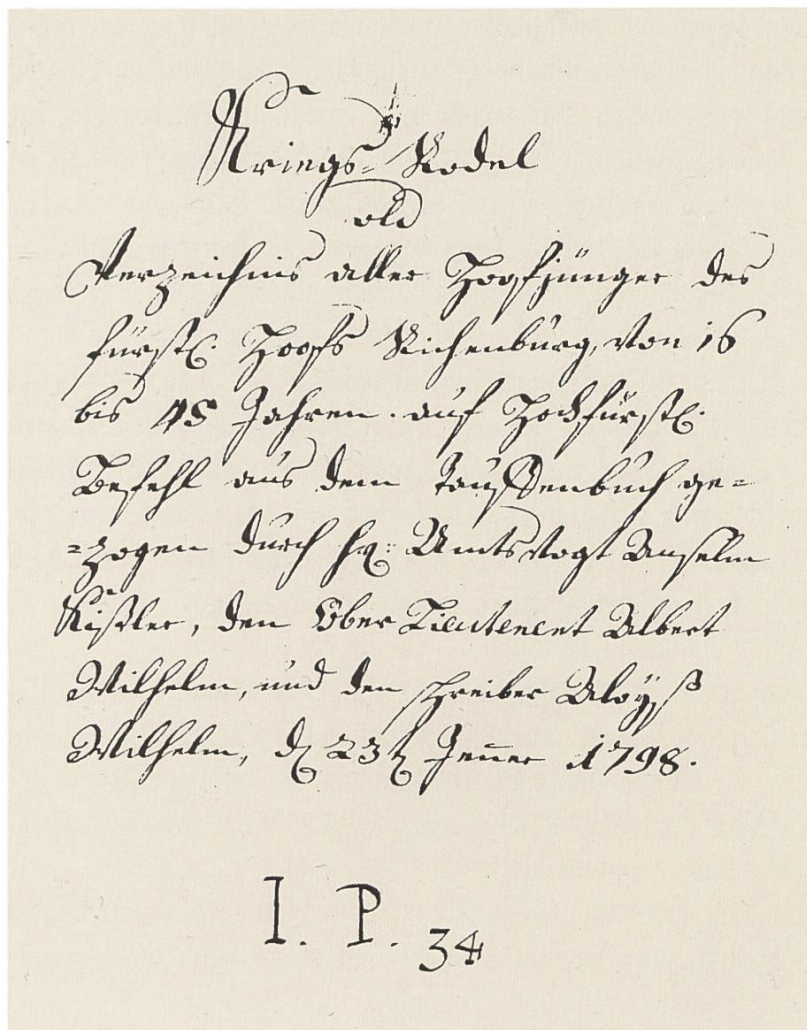 Kriegs-Rodel
old
Verzeichnis aller Hoofjünger des
fürstl. Hoofs Richenburg, von 16
bis 45 Jahren. auf Hochfürstl.
Befehl aus dem Tauffenbuch ge=
=zogen durch hr: Amtsvogt Anselm
Kißler, den Ober Lieutenent Albert
Wilhelm, und den schreiber Aloyß
Wilhelm, d 23t Jenner 1798.
I. P. 34